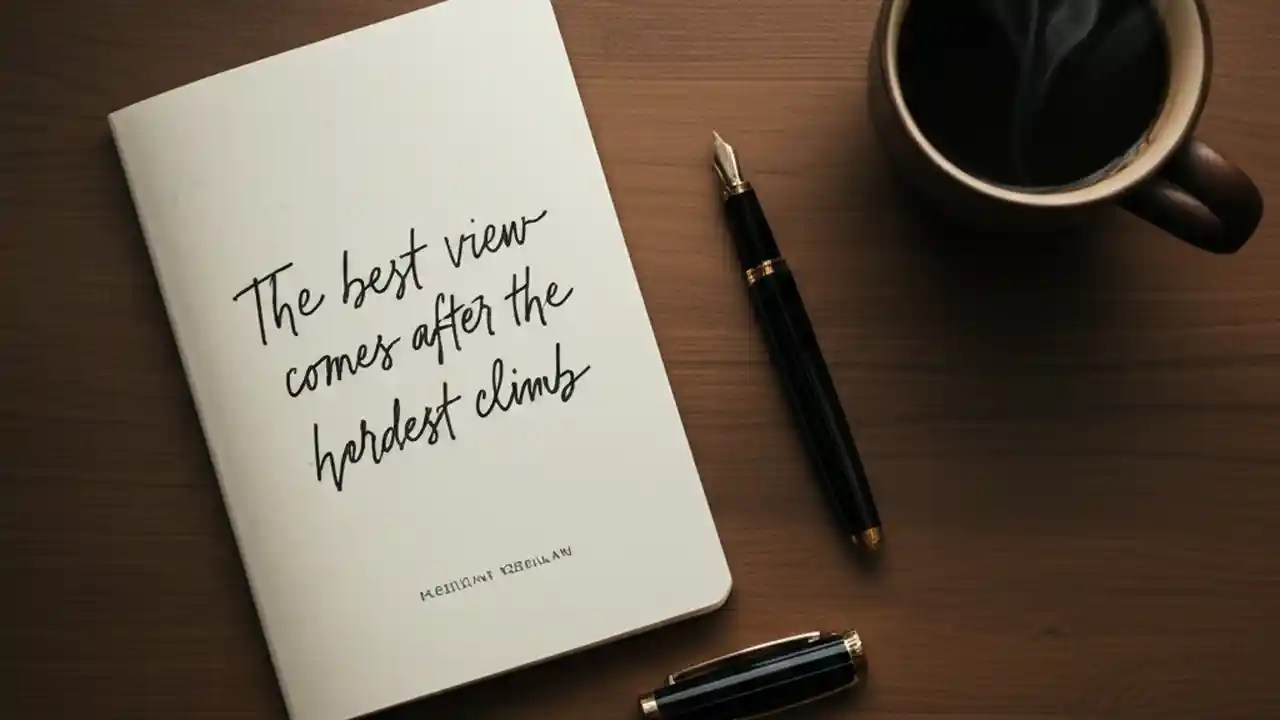 The best view
comes after the
hardest climb